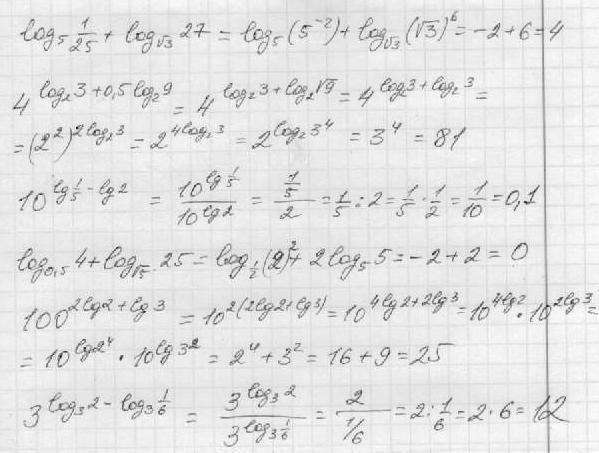 log₅ 1/25 + log_√3 27 = log₅(5⁻²) + log_√3 (√3)⁶ = -2 + 6 = 4
4^(log₂3 + 0,5log₂9) = 4^(log₂3 + log₂√9) = 4^(log₂3 + log₂3) =
= (2²)^(2log₂3) = 2^(4log₂3) = 2^(log₂3⁴) = 3⁴ = 81
10^(lg 1/5 - lg2) = 10^(lg 1/5) / 10^(lg2) = (1/5)/2 = 1/5 : 2 = 1/5 · 1/2 = 1/10 = 0,1
log₀,₅ 4 + log_√5 25 = log_1/2 (2)² + 2log₅5 = -2 + 2 = 0
100^(2lg2 + lg3) = 10^(2(2lg2 + lg3)) = 10^(4lg2 + 2lg3) = 10^(4lg2) · 10^(2lg3) =
= 10^(lg2⁴) · 10^(lg3²) = 2⁴ + 3² = 16 + 9 = 25
3^(log₃2 - log₃ 1/6) = 3^(log₃2) / 3^(log₃ 1/6) = 2/(1/6) = 2 : 1/6 = 2 · 6 = 12